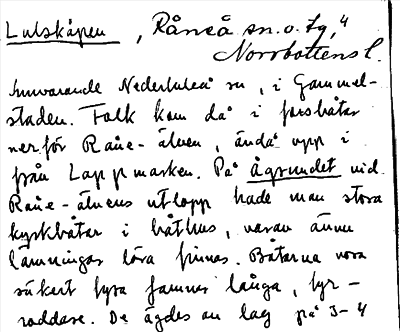 Lulskåpen, Råneå sn. o. tg, 4
Norrbottens l.
nuvarande Nederluleå sn, i Gammel-
staden. Folk kom då i forsbåtar
nerför Råne-älven, ända upp i
från Lappmarken. På Ågrundet vid
Råne-älvens utlopp hade man stora
kyrkbåtar i båthus, varav ännu
lämningar löra finnas. Båtarna voro
säkert fyra famnar långa, fyr-
roddare. De ägdes av lag på 3-4